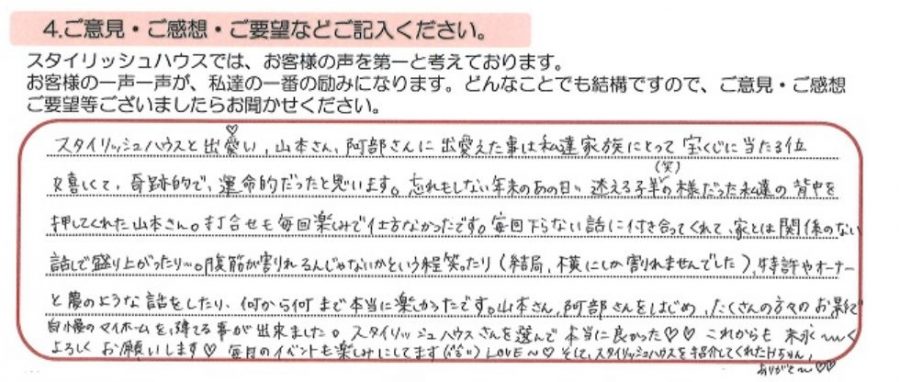 4.ご意見・ご感想・ご要望などご記入ください。
スタイリッシュハウスでは、お客様の声を第一と考えております。
お客様の一声一声が、私達の一番の励みになります。どんなことでも結構ですので、ご意見・ご感想
ご要望等ございましたらお聞かせください。
スタイリッシュハウスと出愛い♡、山本さん、阿部さんに出愛えた事は私達家族にとって宝くじに当たる位
嬉しくて、奇跡的で、運命的だったと思います。忘れもしない年末のあの日、迷える子羊(笑)の様だった私達の背中を
押してくれた山本さん。打合せも毎回楽しみで仕方なかったです。毎回下らない話に付き合ってくれて、家とは関係のない
話しで盛り上がったり…。腹筋が割れるんじゃないかという程笑ったり(結局、横にしか割れませんでした)、特許やオーナー
と夢のような話をしたり、何から何まで本当に楽しかったです。山本さん、阿部さんをはじめ、たくさんの方々のお影で
自慢のマイホームを建てる事が出来ました。スタイリッシュハウスさんを選んで本当に良かった♡♡ これからも末永〜く
よろしくお願いします♡ 毎月のイベントも楽しみにしてます(^^) LOVE〜♡ そして、スタイリッシュハウスを紹介してくれたHちゃん、
ありがと〜♡♡